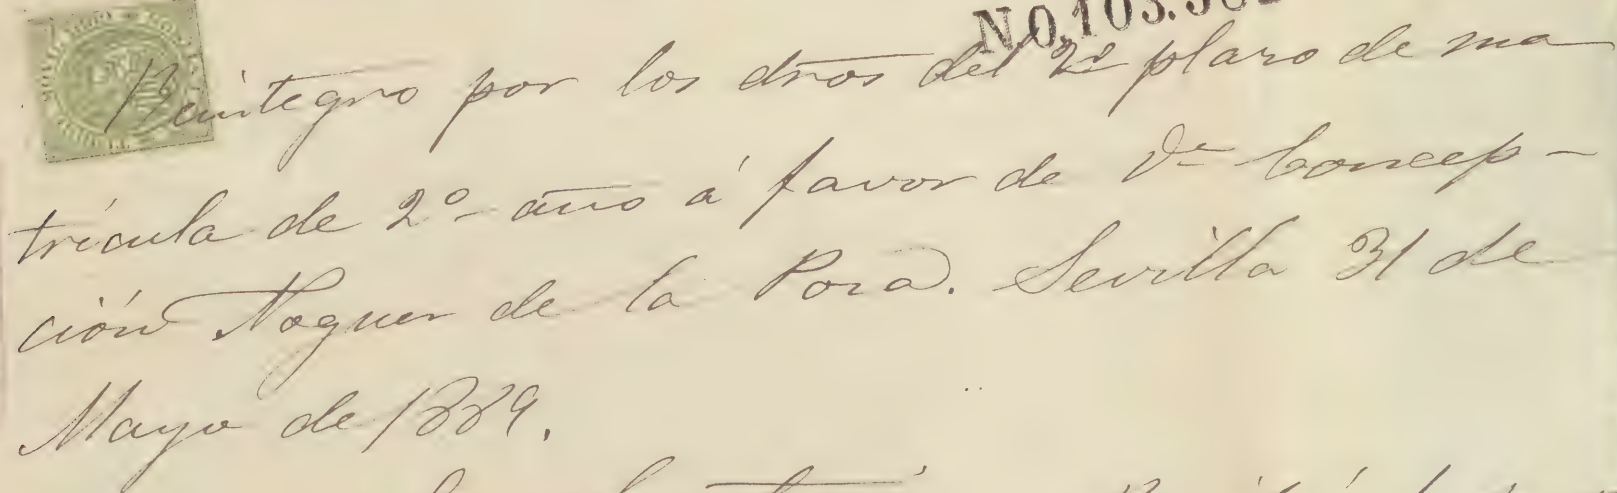 N.0.103.
Reintegro por los dros del 2º plazo de ma
trícula de 2º año á favor de Dª Concep-
ción Noguer de la Poza. Sevilla 31 de
Mayo de 1889.